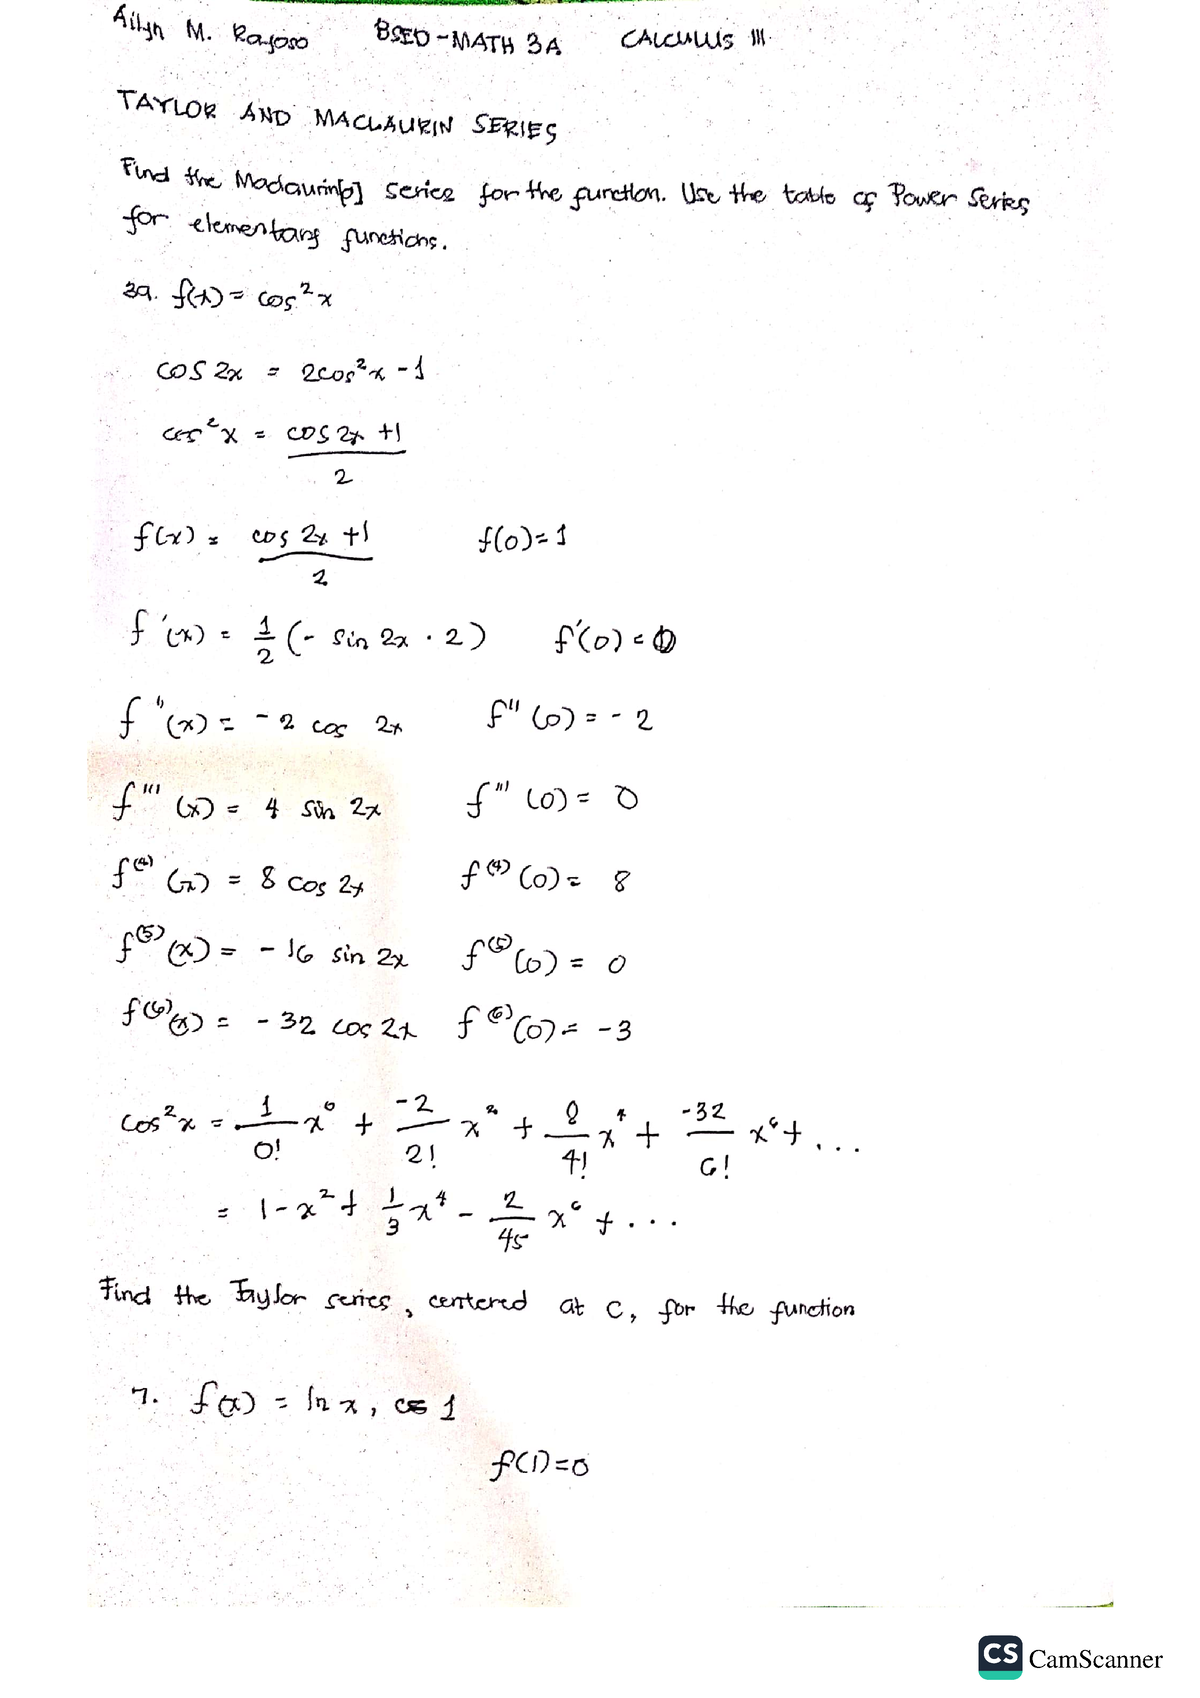 Ailyn M. Rayoso BSED-MATH 3A CALCULUS III.
TAYLOR AND MACLAURIN SERIES
Find the Maclaurin[p] series for the function. Use the table of Power Series
for elementary functions.
39. f(x) = cos²x
cos 2x = 2cos²x - 1
cos²x = cos 2x +1
2
f(x) = cos 2x +1 f(0)=1
2
f'(x) = 1/2 (- sin 2x · 2) f'(0) = 0
f''(x) = -2 cos 2x f''(0) = -2
f'''(x) = 4 sin 2x f'''(0) = 0
f⁽⁴⁾(x) = 8 cos 2x f⁽⁴⁾(0) = 8
f⁽⁵⁾(x) = -16 sin 2x f⁽⁵⁾(0) = 0
f⁽⁶⁾(x) = -32 cos 2x f⁽⁶⁾(0) = -3
cos²x = 1/0! x⁰ + -2/2! x² + 8/4! x⁴ + -32/6! x⁶ + ...
= 1 - x² + 1/3 x⁴ - 2/45 x⁶ + ...
Find the Taylor series, centered at c, for the function
7. f(x) = ln x, c= 1
f(1)=0
CS CamScanner